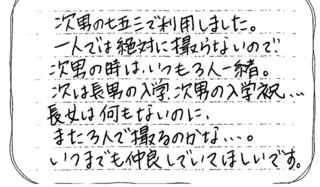 次男の七五三で利用しました。
一人では絶対に撮らないので
次男の時は、いつも3人一緒。
次は長男の入学、次男の入学祝…
長女は何もないのに、
また3人で撮るのかな…。
いつまでも仲良しでいてほしいです。